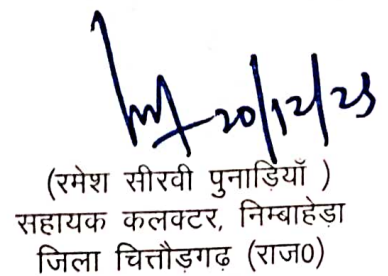 20/12/23
(रमेश सीरवी पुनाड़ियाँ )
सहायक कलक्टर, निम्बाहेड़ा
जिला चित्तौड़गढ़ (राज0)